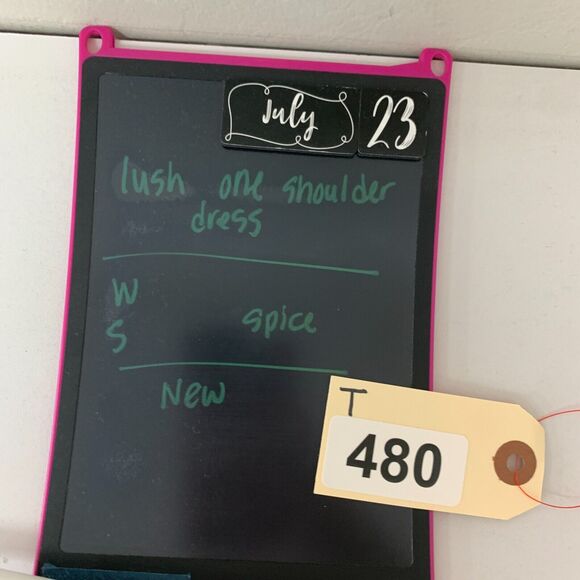 July 23
lush one shoulder
dress
W
spice
S
New
T
480